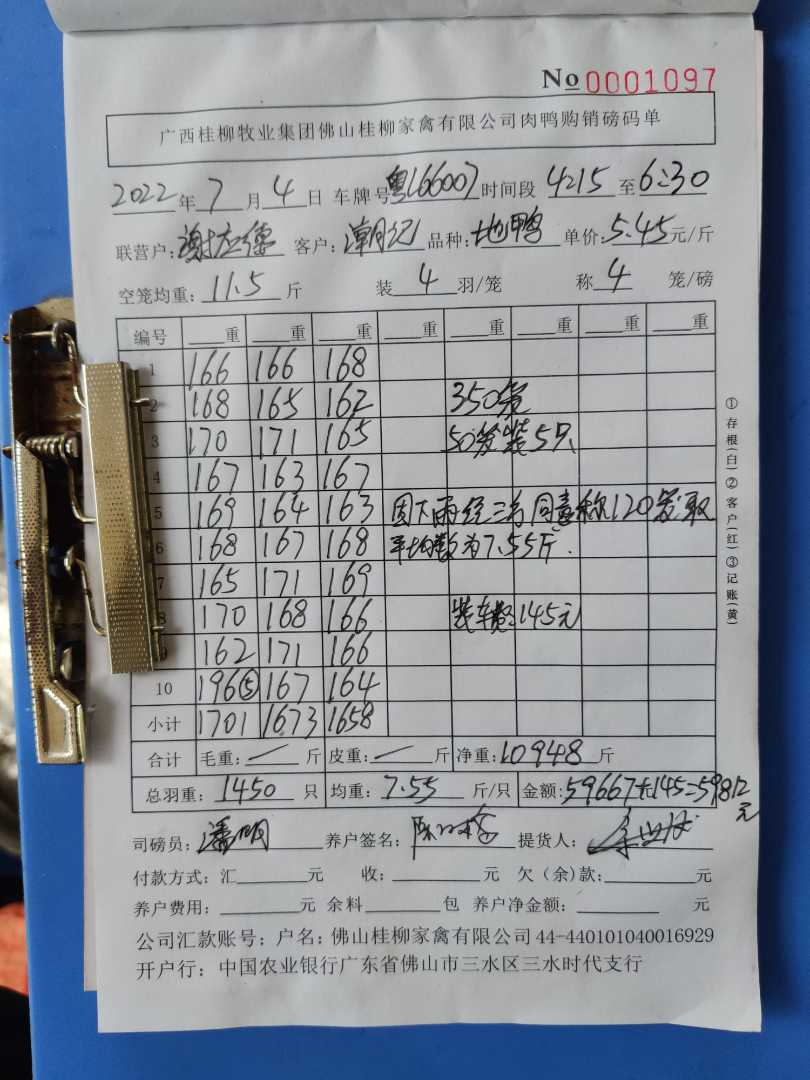 No 0001097
广西桂柳牧业集团佛山桂柳家禽有限公司肉鸭购销磅码单
2022年 7 月 4 日 车牌号 粤L66007 时间段 4:15 至 6:30
联营户: 谢应德 客户: 潮记 品种: 地鸭 单价: 5.45 元/斤
空笼均重: 11.5 斤 装 4 羽/笼 称 4 笼/磅
编号 重 重 重 重 重 重 重 重
1 166 166 168
2 168 165 162 350笼
3 170 171 165 50笼装5只
4 167 163 167
5 169 164 163 因下雨经三方同意称120笼取
6 168 167 168 平均数为7.55斤.
7 165 171 169
8 170 168 166 装车费:145元
9 162 171 166
10 196⑤ 167 164
小计 1701 1673 1658
合计 毛重: 斤 皮重: 斤 净重: 10948 斤
总羽重: 1450 只 均重: 7.55 斤/只 金额: 59667+145=59812元
司磅员: 潘明 养户签名: 提货人:
付款方式: 汇 元 收: 元 欠(余)款: 元
养户费用: 元 余料 包 养户净金额: 元
公司汇款账号: 户名: 佛山桂柳家禽有限公司 44-440101040016929
开户行: 中国农业银行广东省佛山市三水区三水时代支行
①存根(白)②客户(红)③记账(黄)